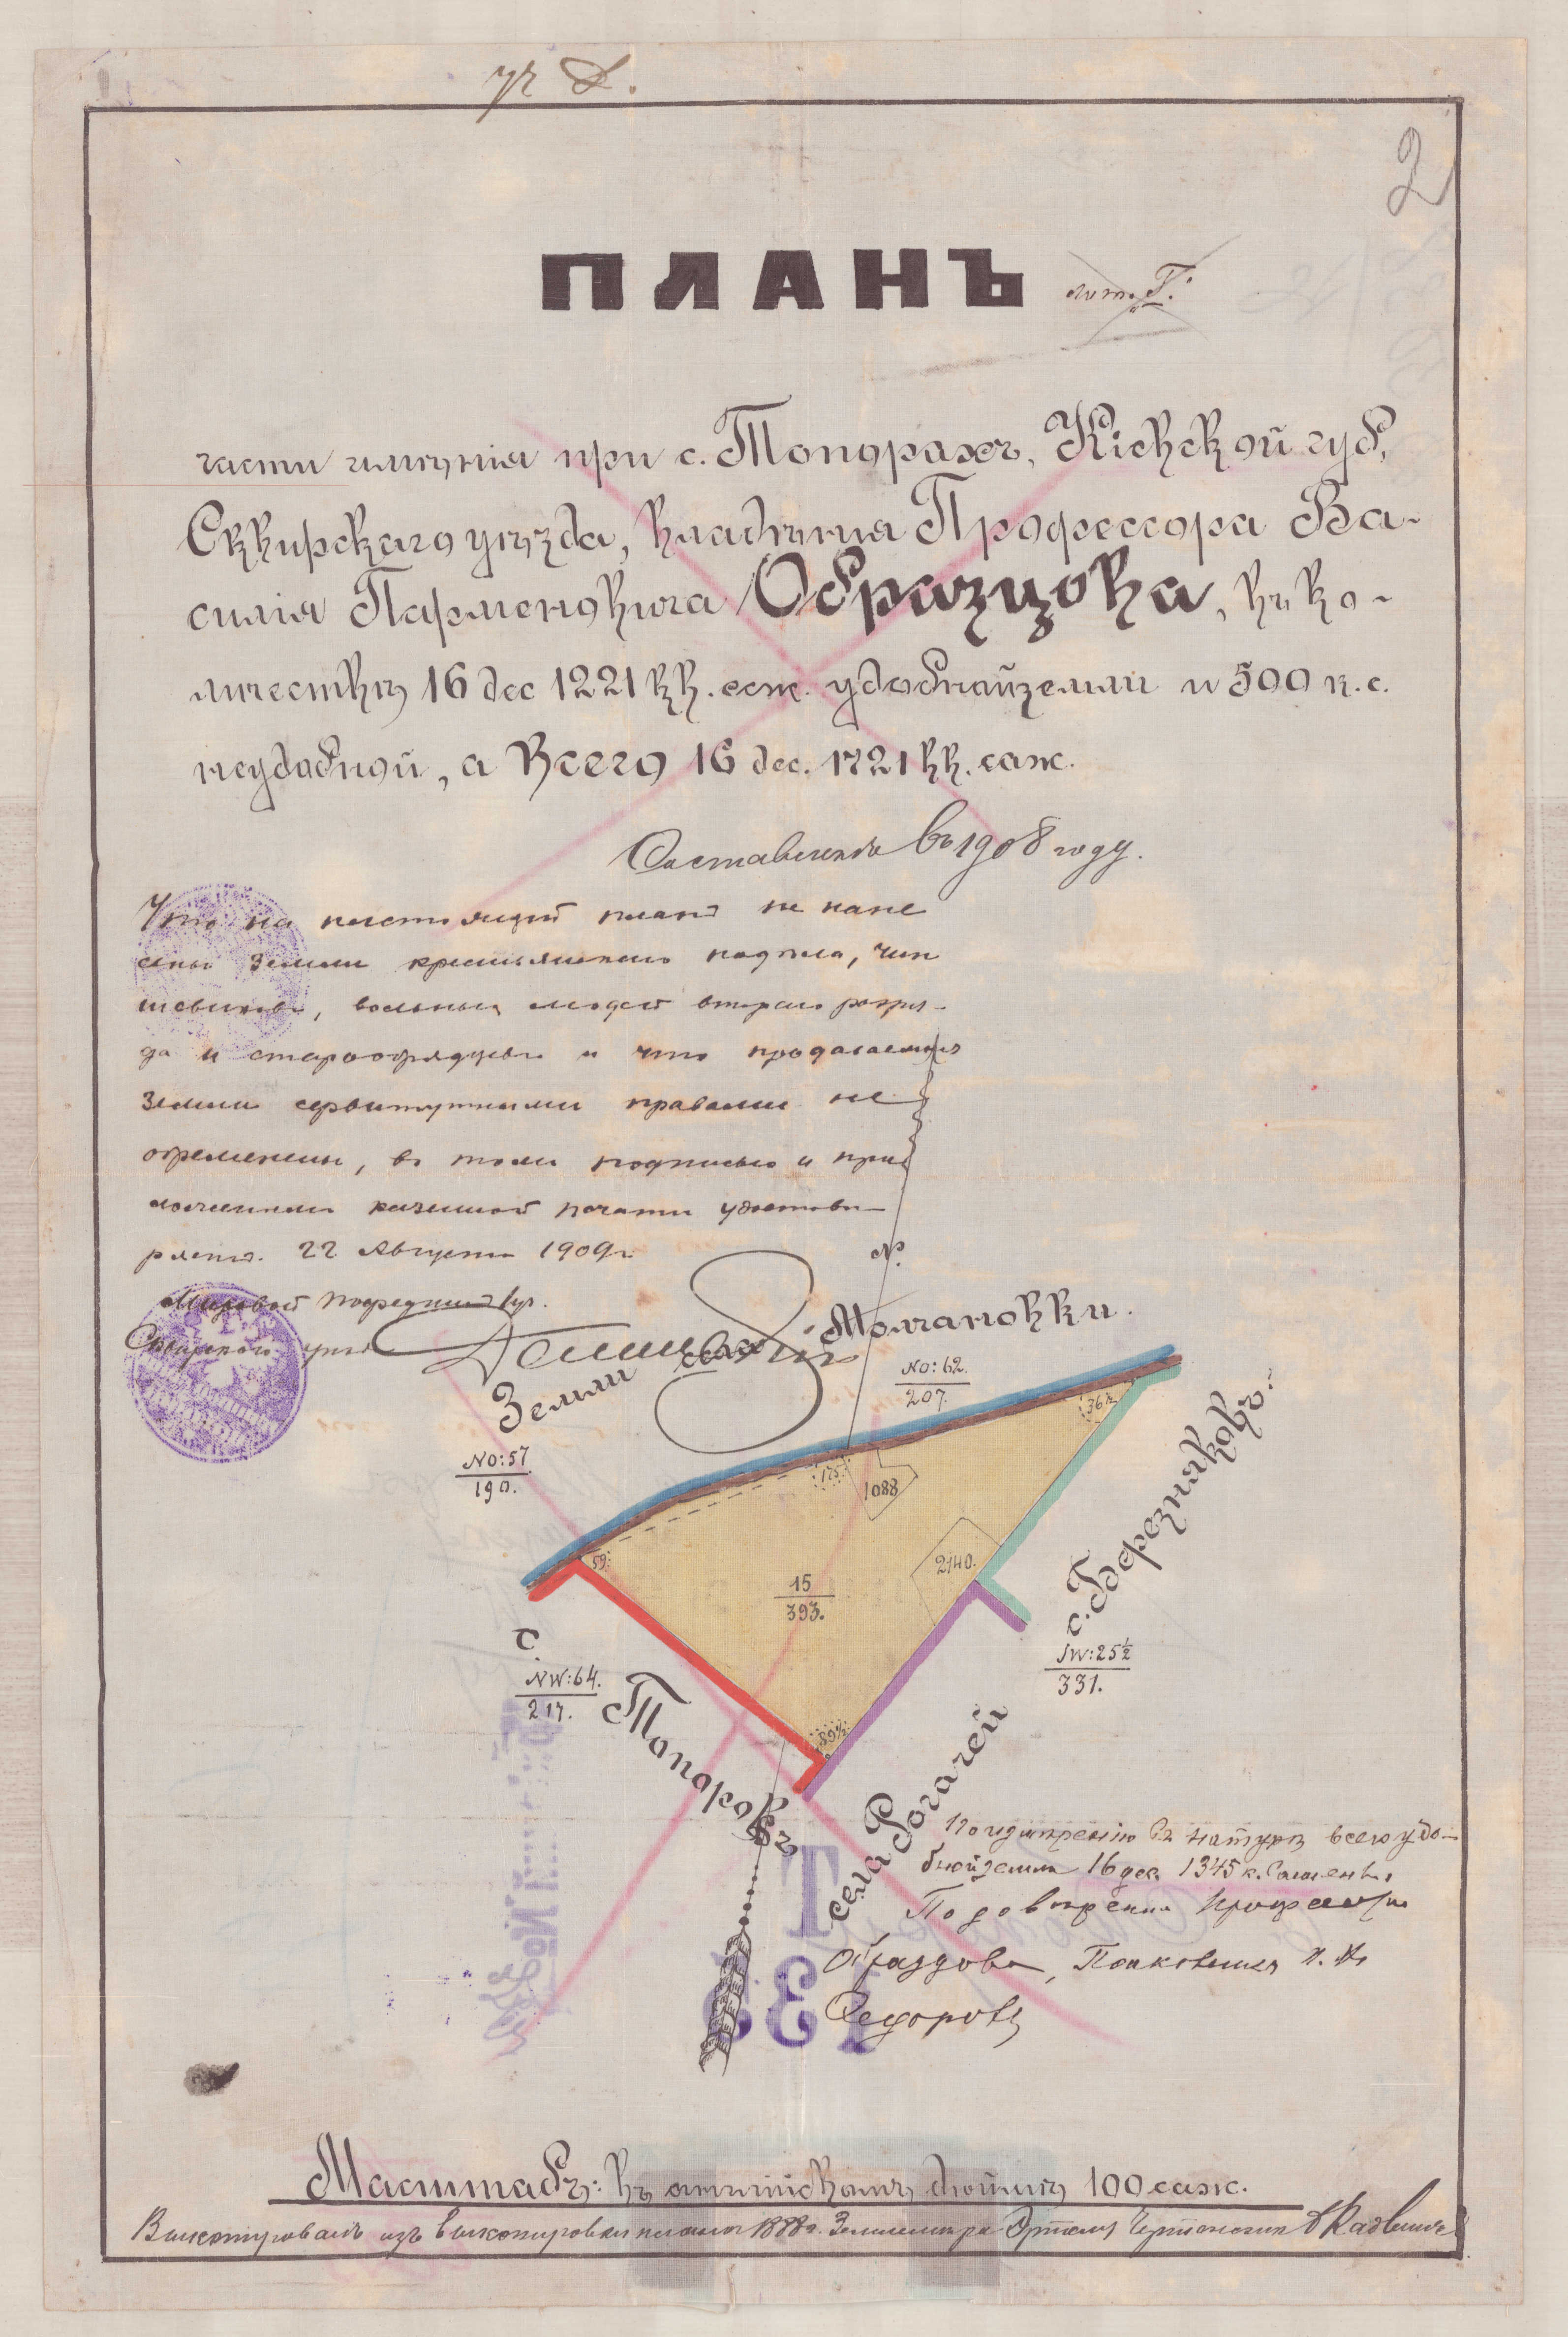 2
ПЛАНЪ
лит. Г.
части имѣнія при с. Топорахъ, Кіевской губ,
Сквирскаго уѣзда, владѣнія Профессора Ва-
силія Парменовича Образцова, въ ко-
личествѣ 16 дес 1221 кв. саж. удобной земли и 500 к. с.
неудобной, а Всего 16 дес. 1721 кв. саж.
Составленъ въ 1908 году.
Что на настоящій планъ не нане
сены земли крестьянскаго надѣла, чин
шевиковъ, вольныхъ людей втораго разря-
да и старообрядцевъ и что продаваемыя
земли сервитутными правами не
обременены, въ томъ подписью и при
ложеніемъ казенной печати удостовѣ-
ряетъ. 22 Августа 1909 г
Мировой посредникъ
Сквирскаго
Земли села Молчановки.
NO:62.
207.
NO:57.
190.
36½
175.
1088
59.
15
393.
2140.
89½.
с. Березняковъ.
JW:25½
331.
с. Топоровъ
NW:64.
217.
села Рогачей
По измѣренію въ натурѣ всего удо-
бной земли 16 дес. 1345 к. сажень.
По довѣренію Професора
Образцова, Полковникъ
Федоровъ
Масштабъ: въ англійскомъ дюймѣ 100 саж.
Выкопировалъ изъ выкопировки плана 1888 г. Землемѣра